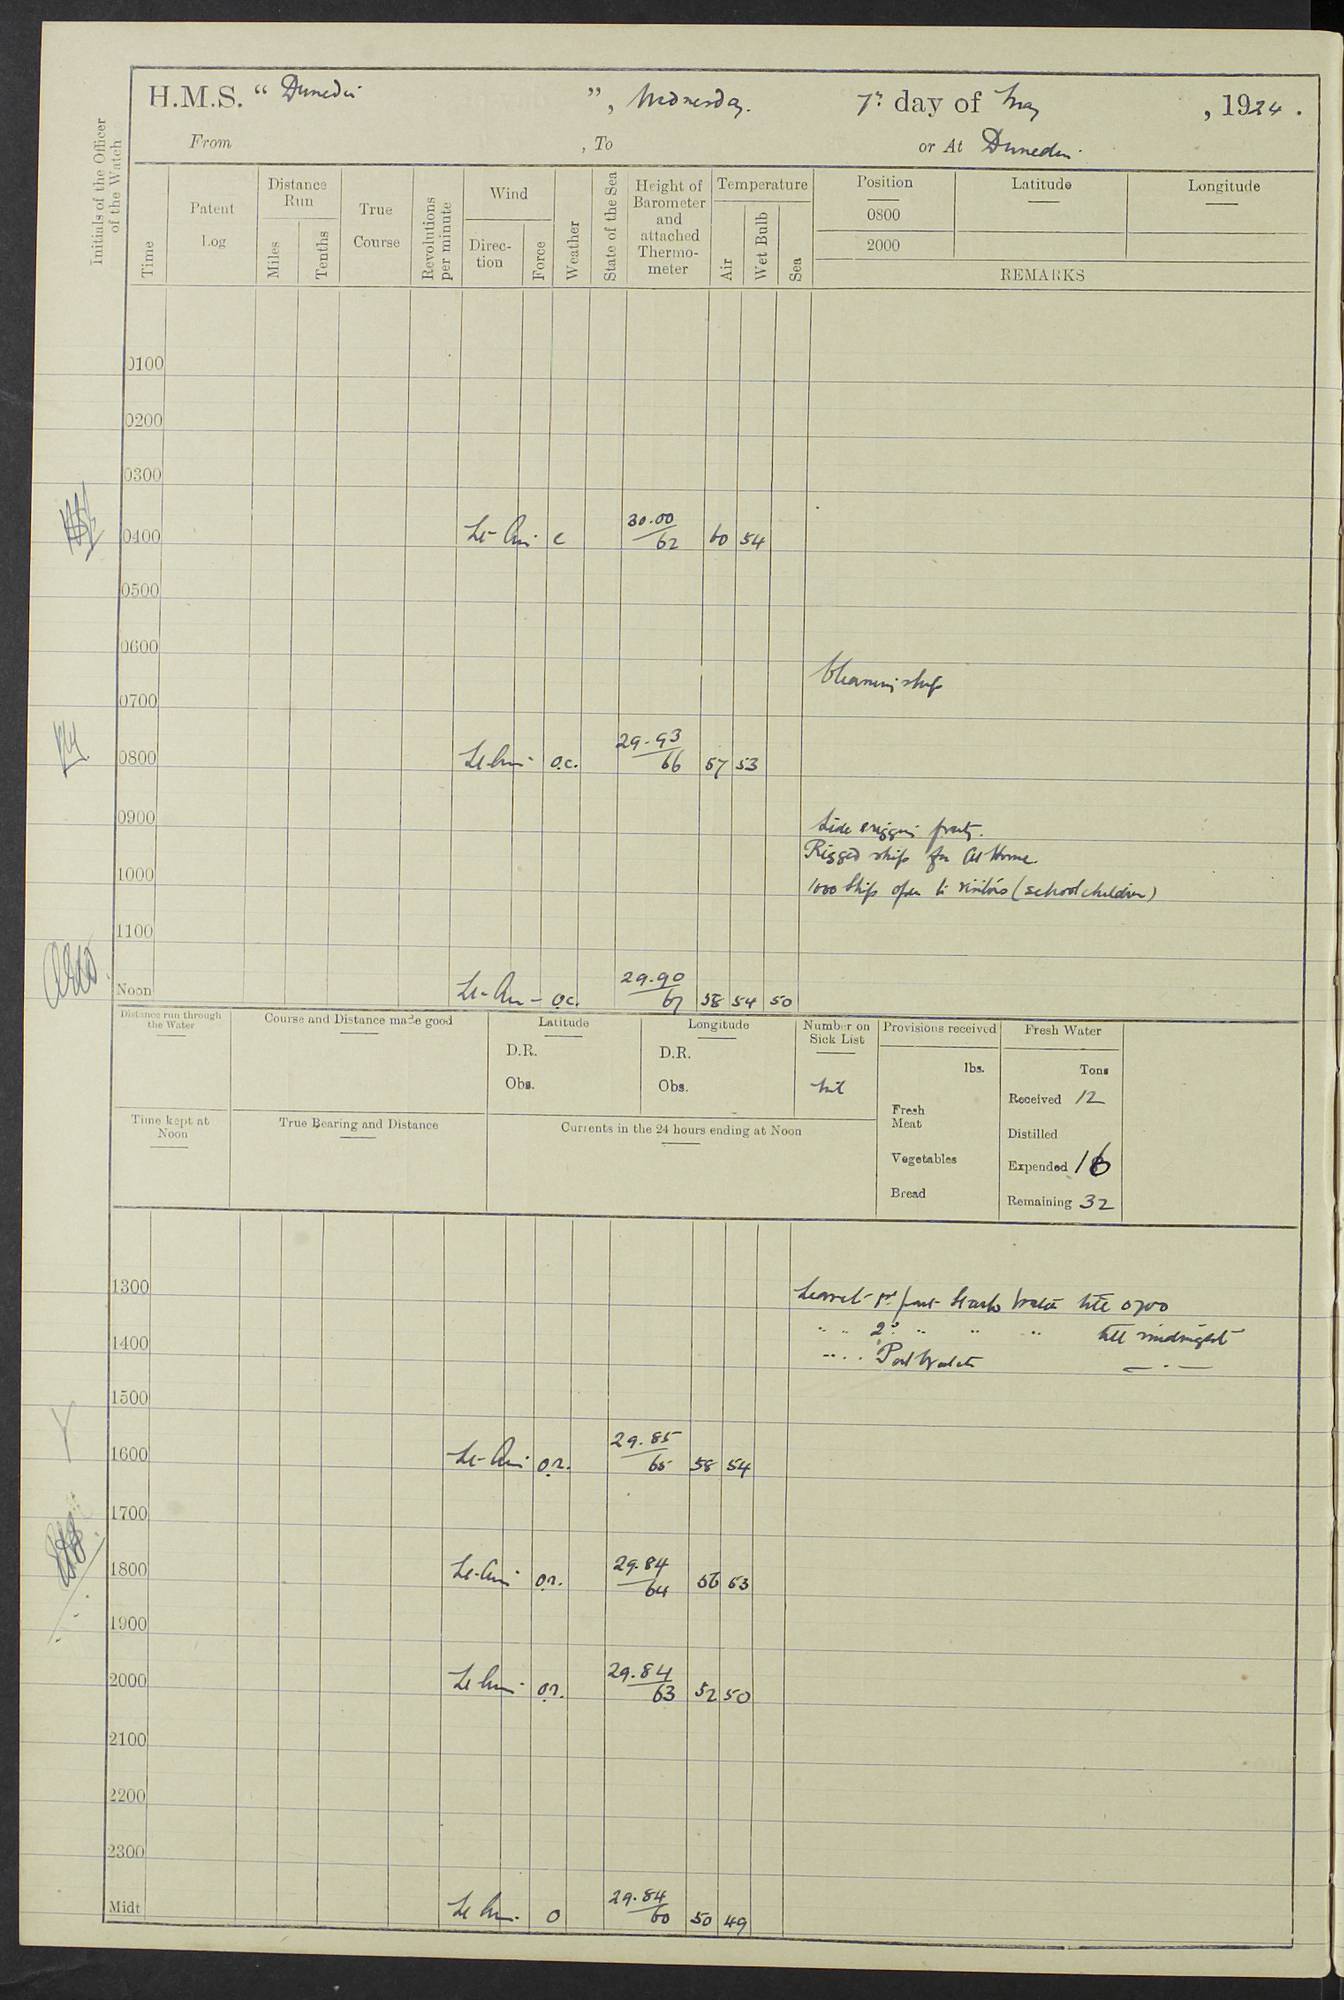 H.M.S. “ Dunedin ”, Wednesday. 7th day of May , 1924 .
From , To or At Dunedin.
Initials of the Officer of the Watch
Time
Patent Log
Distance Run
Miles
Tenths
True Course
Revolutions per minute
Wind
Direc- tion
Force
Weather
State of the Sea
Height of Barometer and attached Thermo- meter
Temperature
Air
Wet Bulb
Sea
Position Latitude Longitude
0800
2000
REMARKS
0100
0200
0300
0400 Lt- Airs c 30.00 / 62 60 54
0500
0600
Cleaning ship
0700
0800 Lt Airs o.c. 29.93 / 66 57 53
0900 Side rigging party.
Rigged ship for At Home.
1000 1000 Ship open to visitors (school children)
1100
Noon Lt- Airs - o.c. 29.90 / 67 58 54 50
Distance run through the Water
Course and Distance made good
Latitude
D.R.
Obs.
Longitude
D.R.
Obs.
Number on Sick List
Nil
Provisions received
lbs.
Fresh Meat
Vegetables
Bread
Fresh Water
Tons
Received 12
Distilled
Expended 16
Remaining 32
Time kept at Noon
True Bearing and Distance
Currents in the 24 hours ending at Noon
1300 Leave to 1st part Starb Watch till 0700
" " 2nd " " " till midnight
1400 " " Port Watch — " —
1500
1600 Lt- Airs o.r. 29.85 / 65 58 54
1700
1800 Lt- Airs o.r. 29.84 / 64 56 53
1900
2000 Lt Airs o.r. 29.84 / 63 52 50
2100
2200
2300
Midt Lt Airs. o 29.84 / 60 50 49